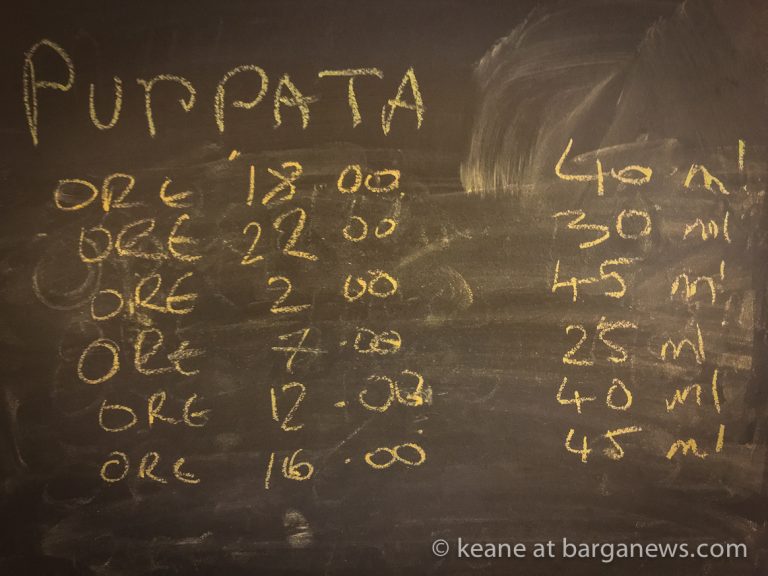 PUPPATA
ORE 18.00 40 ml
ORE 22 00 30 ml
ORE 2 00 45 ml
ORE 7.00 25 ml
ORE 12.00 40 ml
ORE 16.00 45 ml
© keane at barganews.com